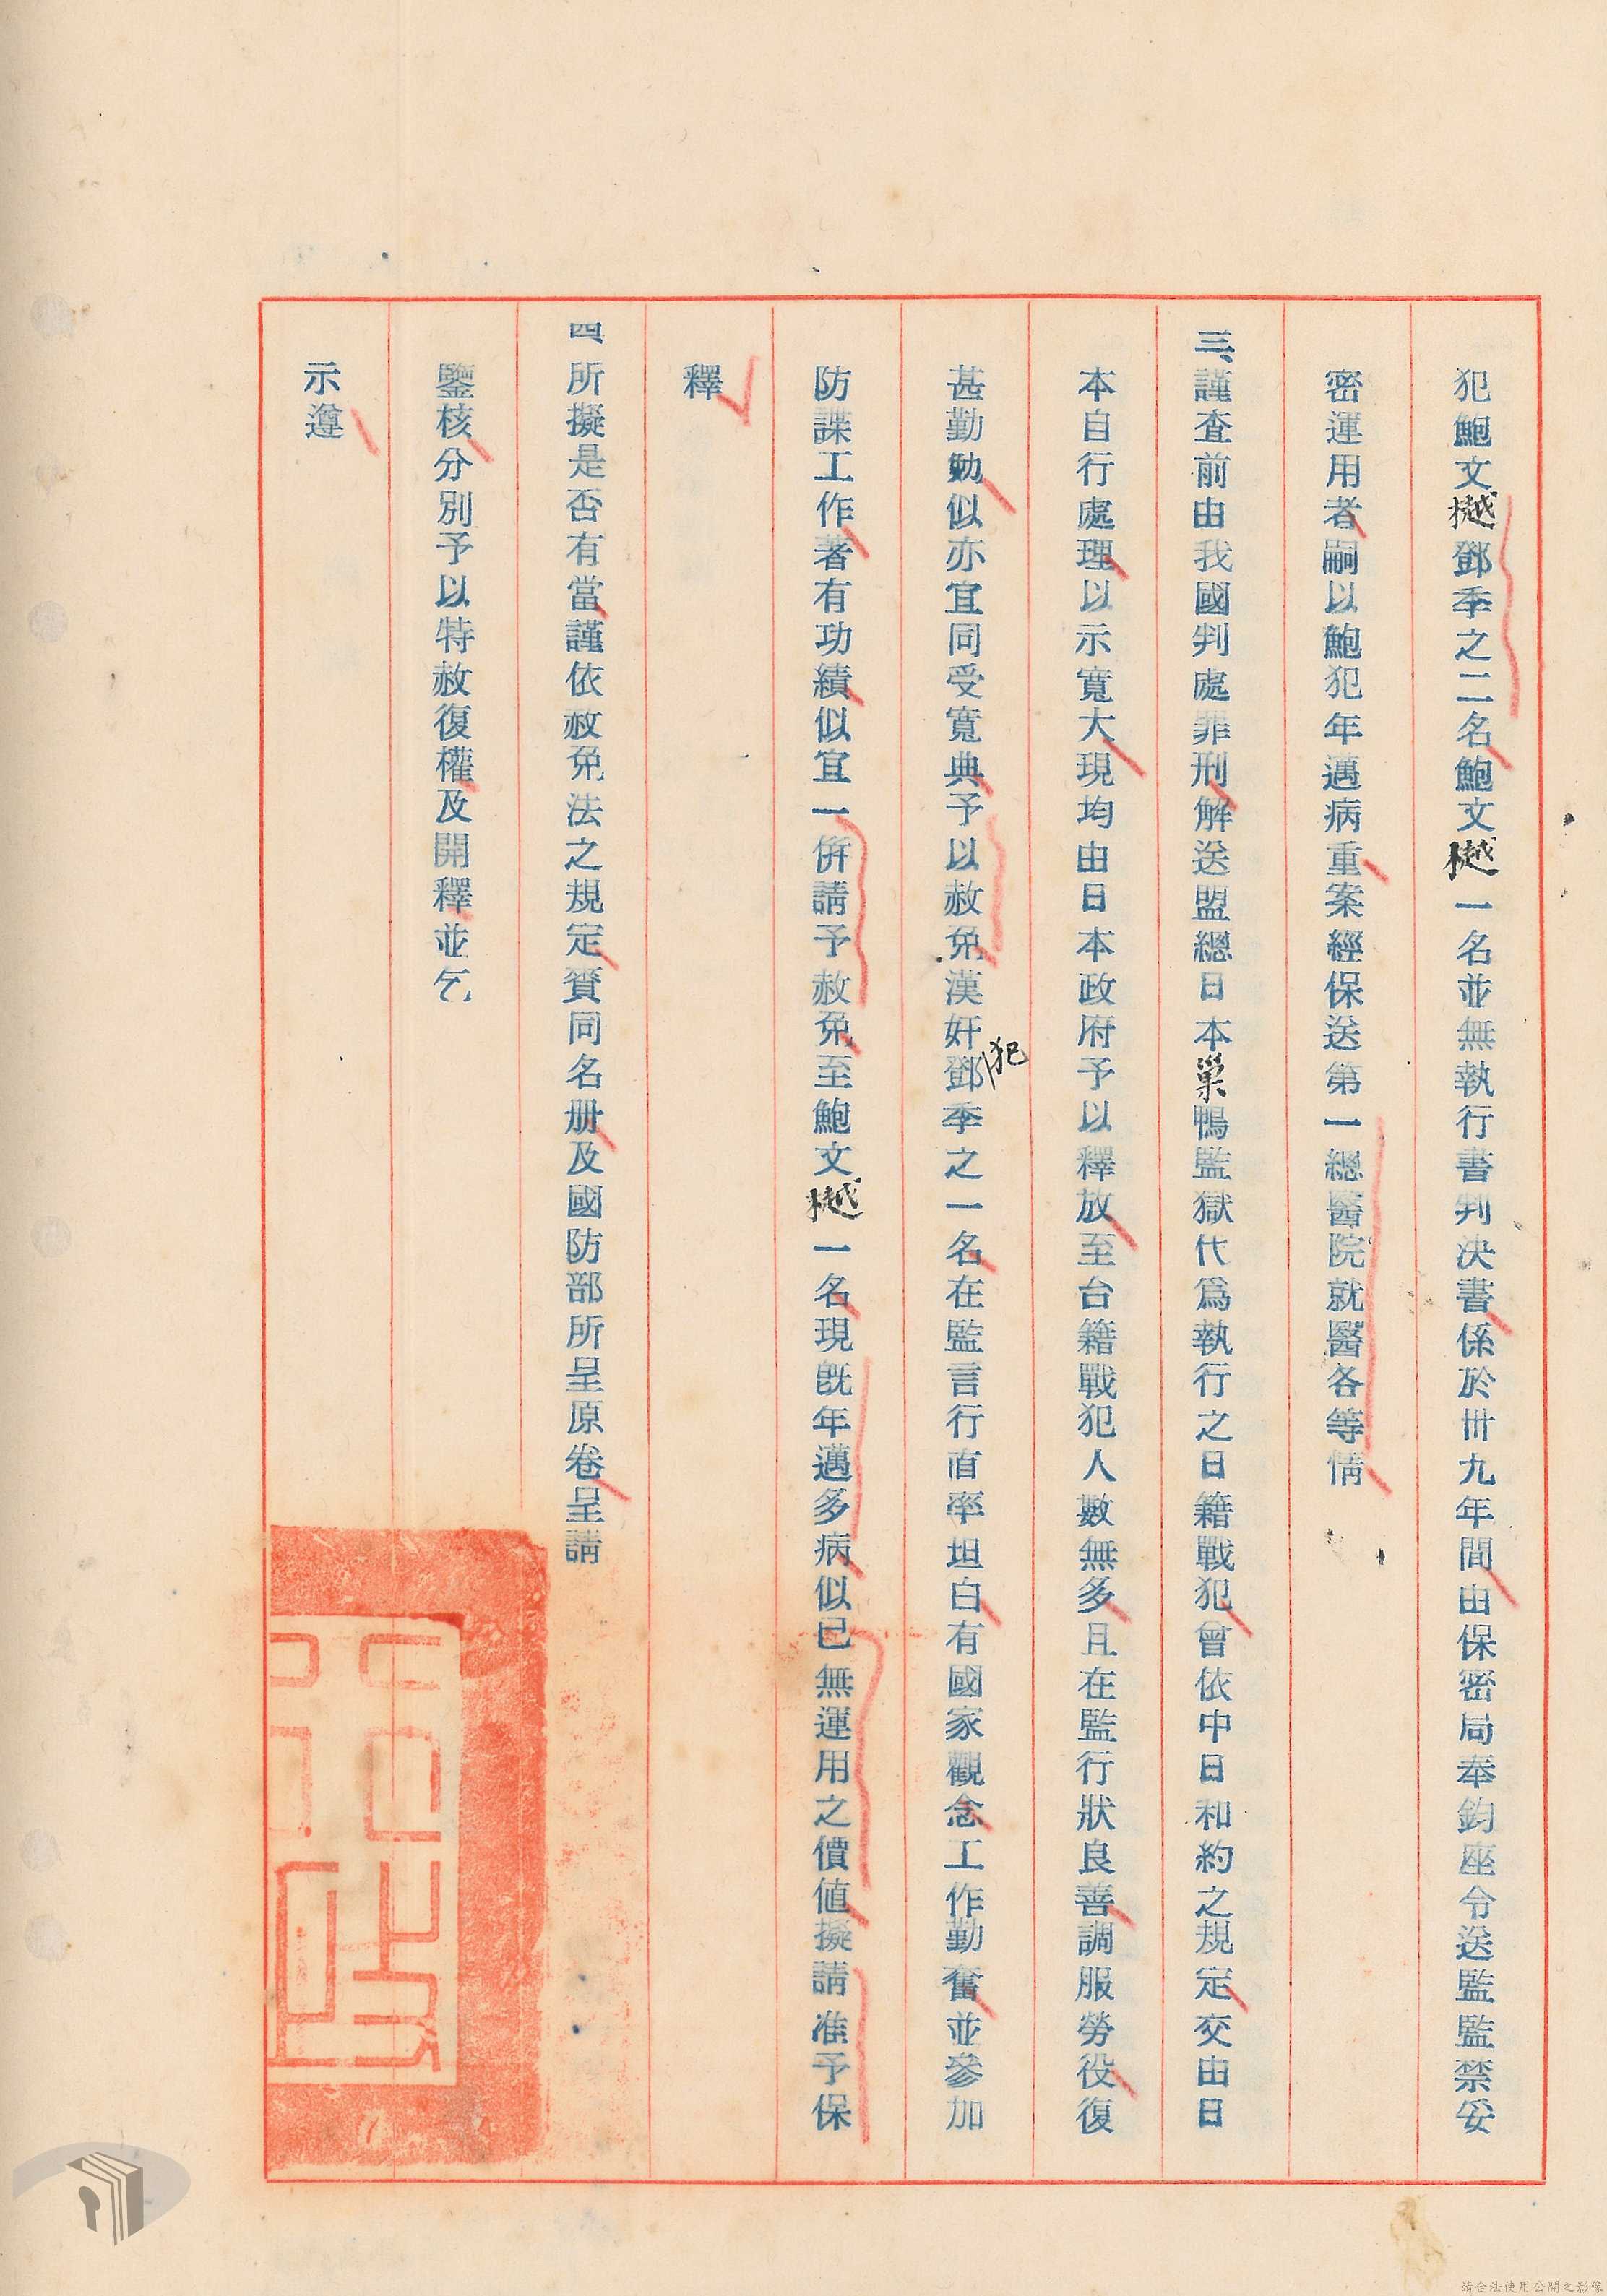 犯鮑文樾鄧季之二名鮑文樾一名並無執行書判決書係於卅九年間由保密局奉鈞座令送監監禁妥
密運用者嗣以鮑犯年邁病重案經保送第一總醫院就醫各等情
三、謹查前由我國判處罪刑解送盟總日本巢鴨監獄代爲執行之日籍戰犯曾依中日和約之規定交由日
本自行處理以示寬大現均由日本政府予以釋放至台籍戰犯人數無多且在監行狀良善調服勞役復
甚勤勉似亦宜同受寬典予以赦免漢奸犯鄧季之一名在監言行直率坦白有國家觀念工作勤奮並參加
防諜工作著有功績似宜一併請予赦免至鮑文樾一名現旣年邁多病似已無運用之價値擬請准予保
釋
四、所擬是否有當謹依赦免法之規定賫同名册及國防部所呈原卷呈請
鑒核分別予以特赦復權及開釋並乞
示遵
請合法使用公開之影像